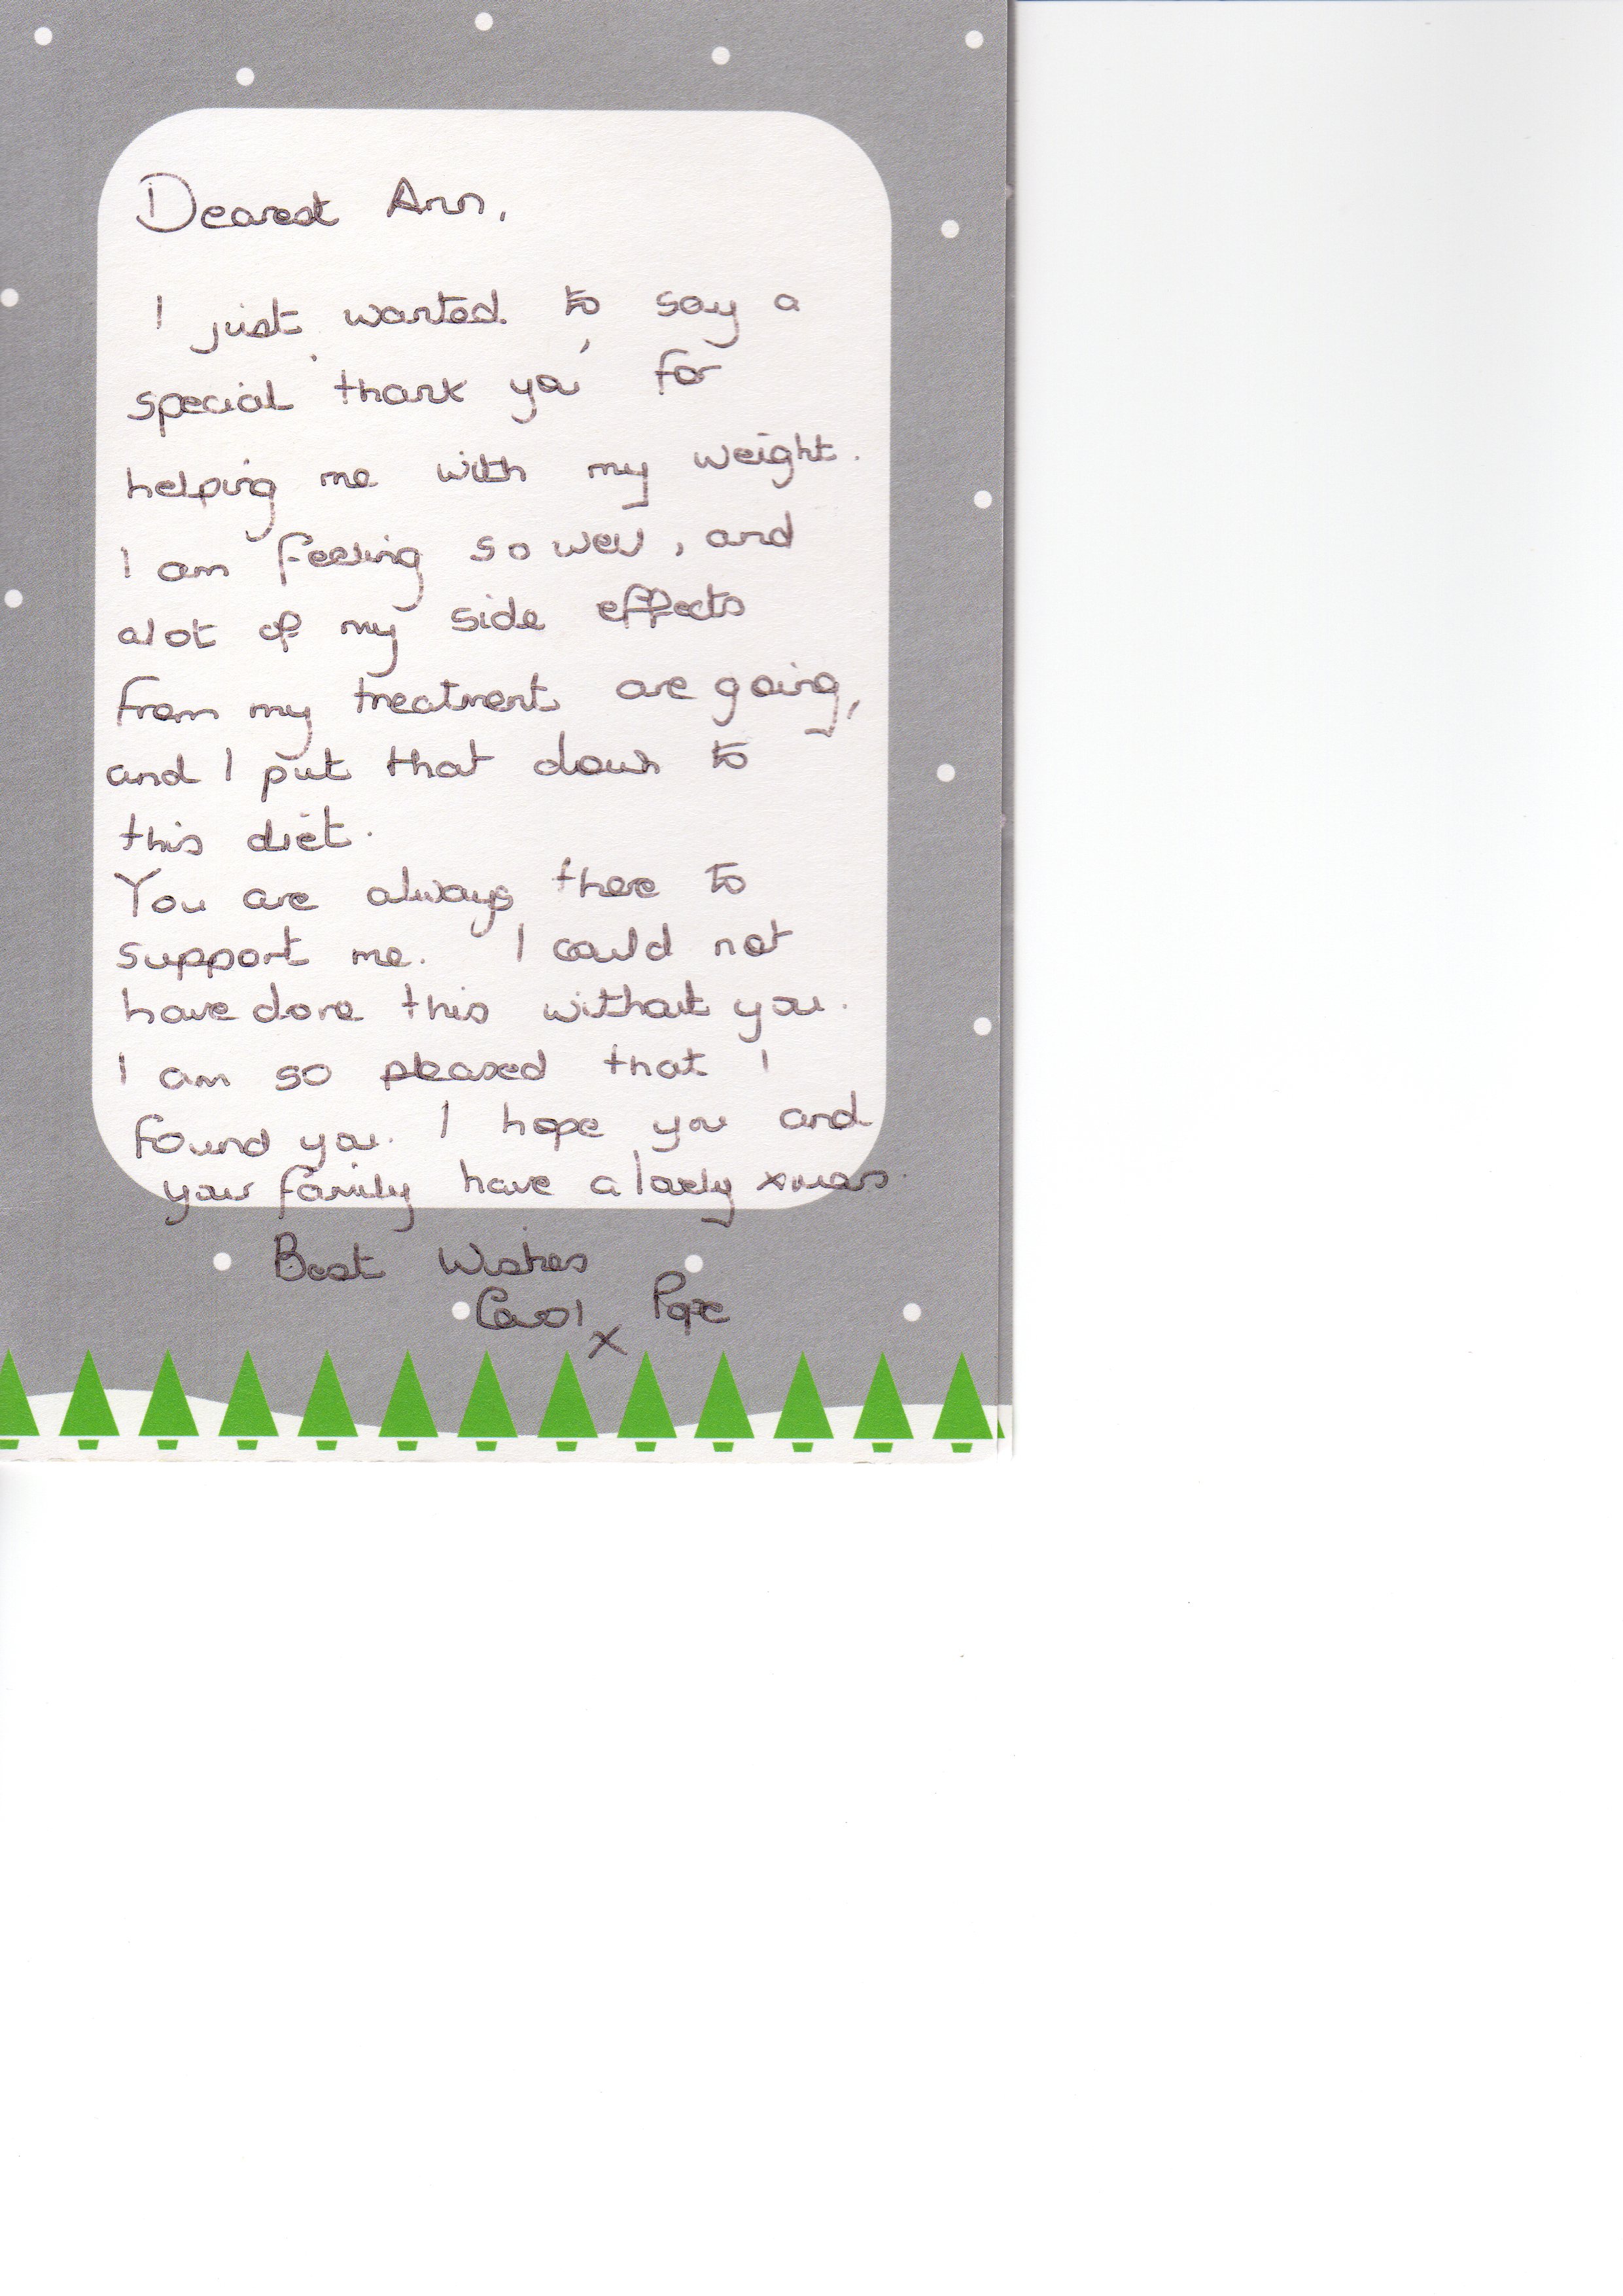 Dearest Ann,
I just wanted to say a
special 'thank you' for
helping me with my weight.
I am feeling so well, and
alot of my side effects
from my treatment are going,
and I put that down to
this diet.
You are always there to
support me. I could not
have done this without you.
I am so pleased that I
found you. I hope you and
your family have a lovely xmas.
Best Wishes
Carol Pope
x